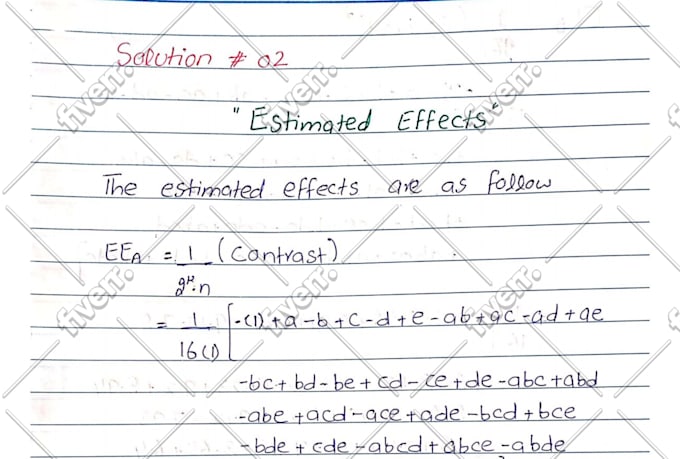 Solution # 02
"Estimated Effects"
The estimated effects are as follow
EEA = 1 (Contrast)
2ᴷ.n
= 1 [-(1)+a-b+c-d+e-ab+ac-ad+ae
16(1)
-bc+bd-be+cd-ce+de-abc+abd
-abe+acd-ace+ade-bcd+bce
-bde+cde-abcd+abce-abde
fiverr.
fiverr.
fiverr.
fiverr.
fiverr.
fiverr.